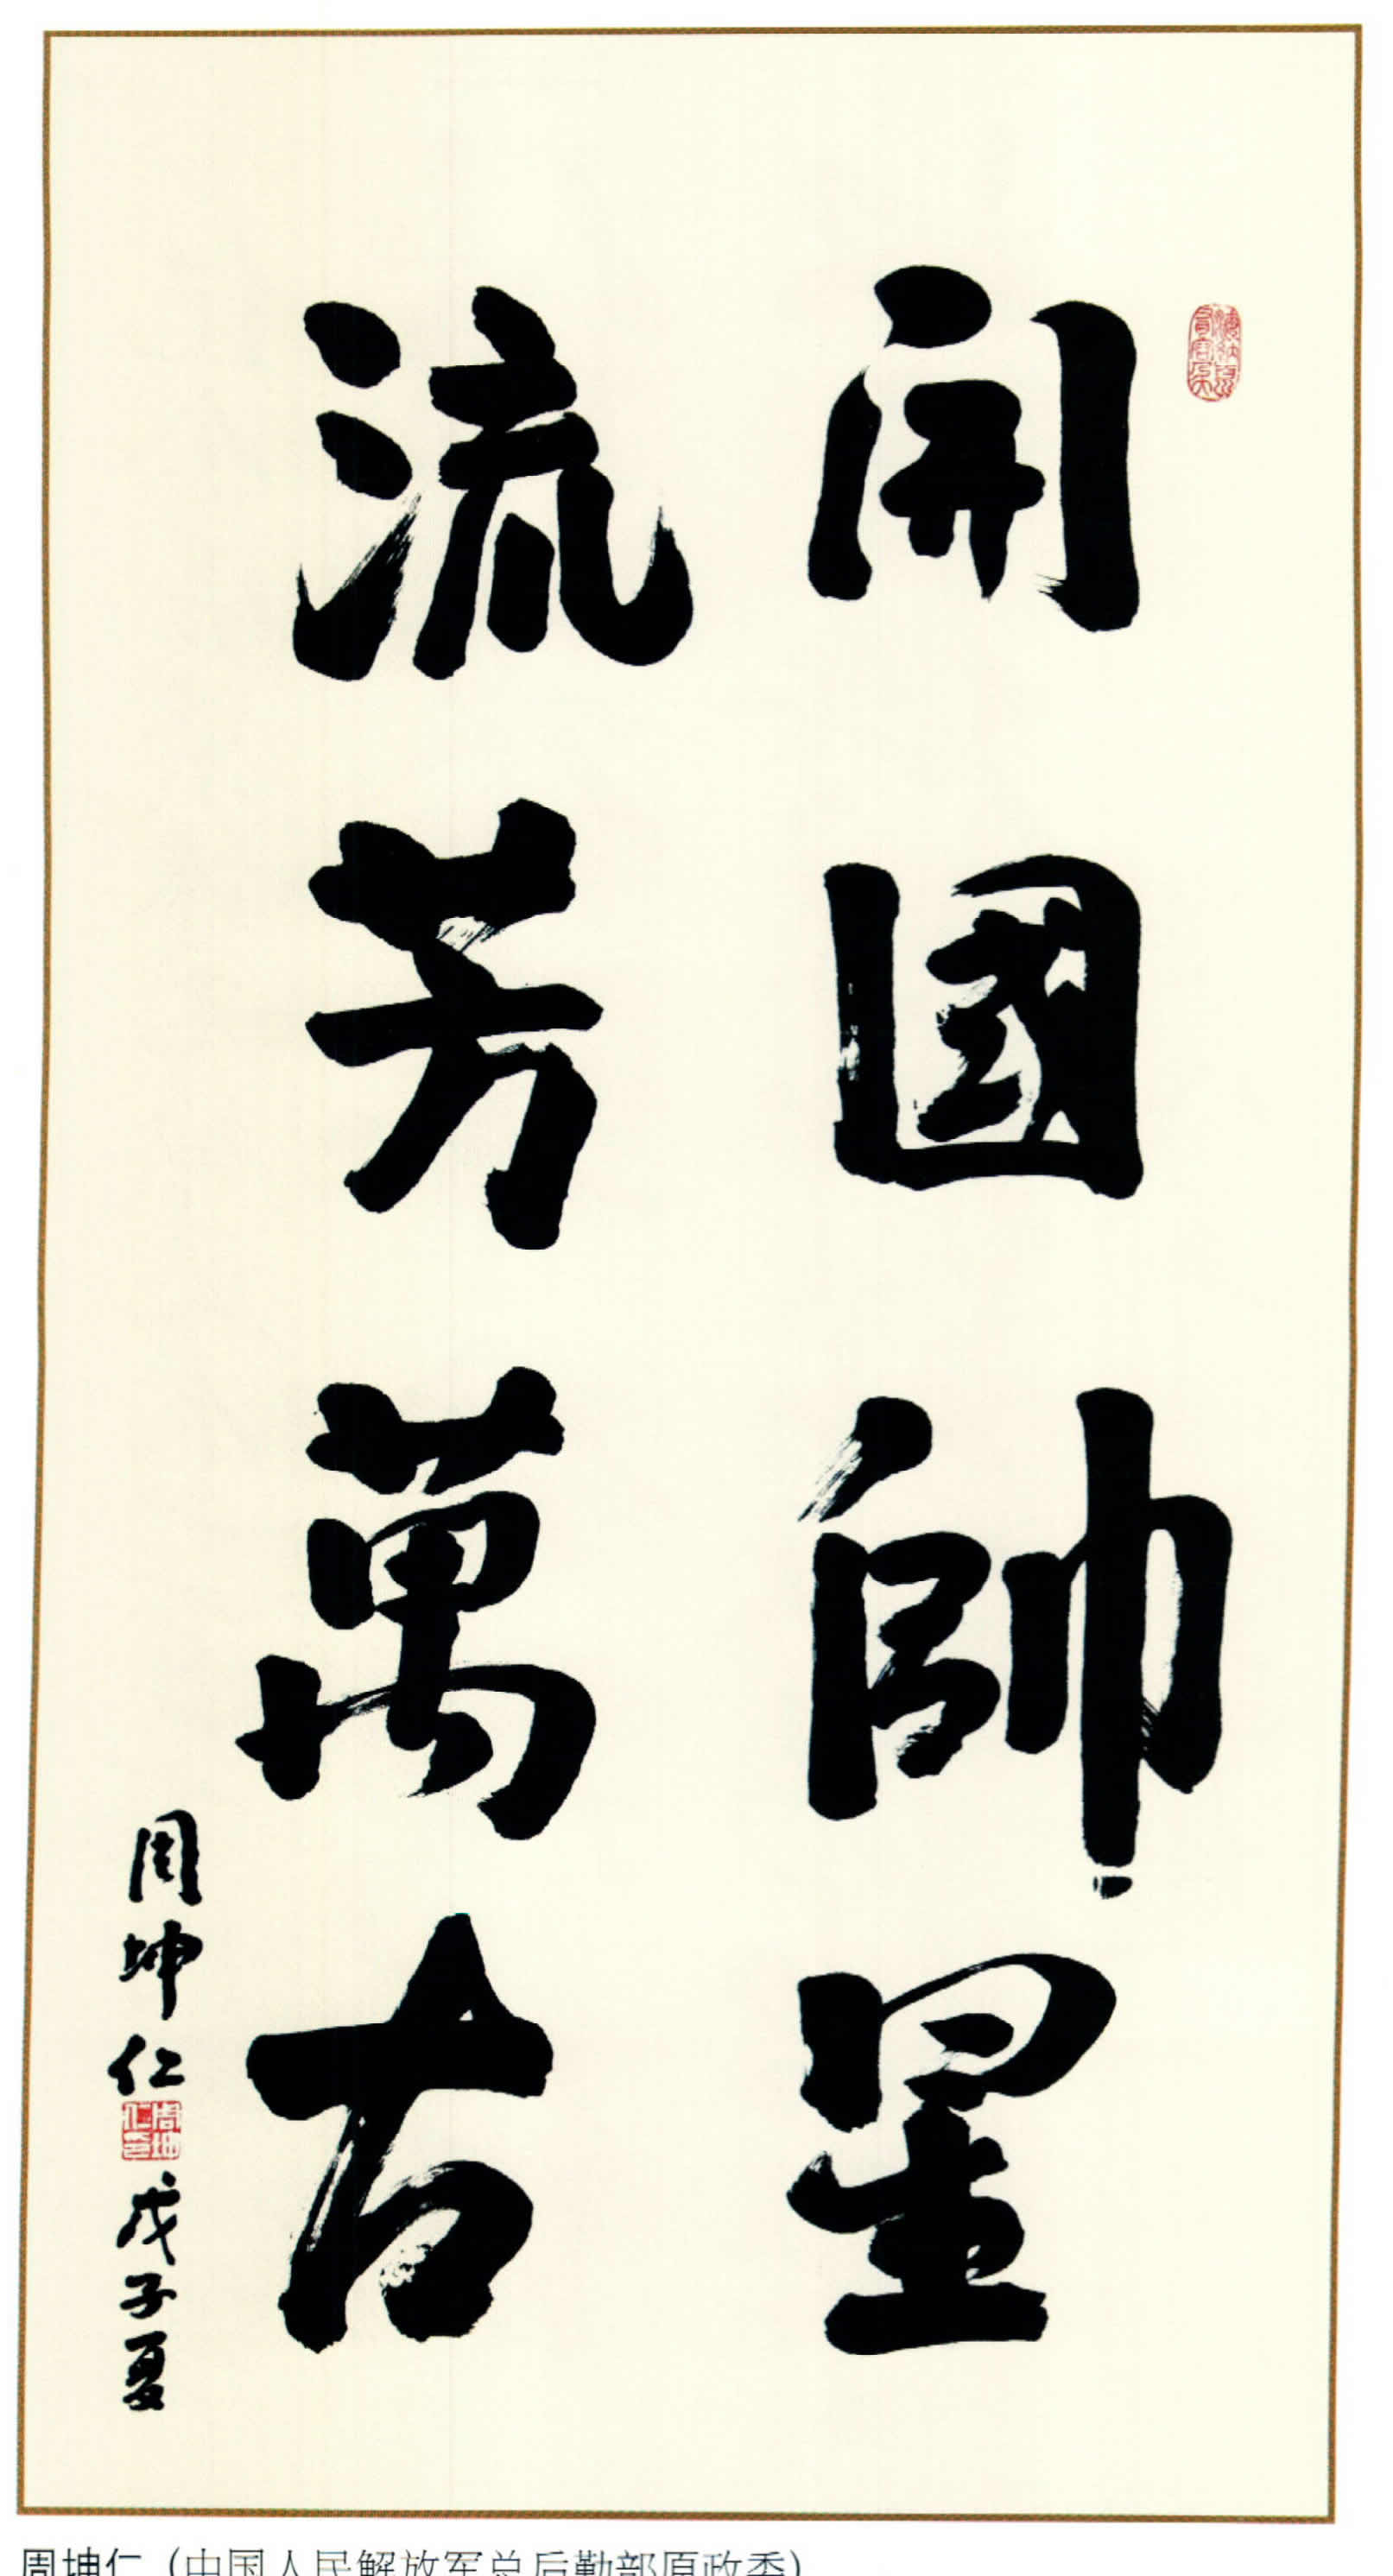 開國帥星
流芳萬古
周坤仁
周坤仁印
戊子夏
周坤仁（中国人民解放军总后勤部原政委）